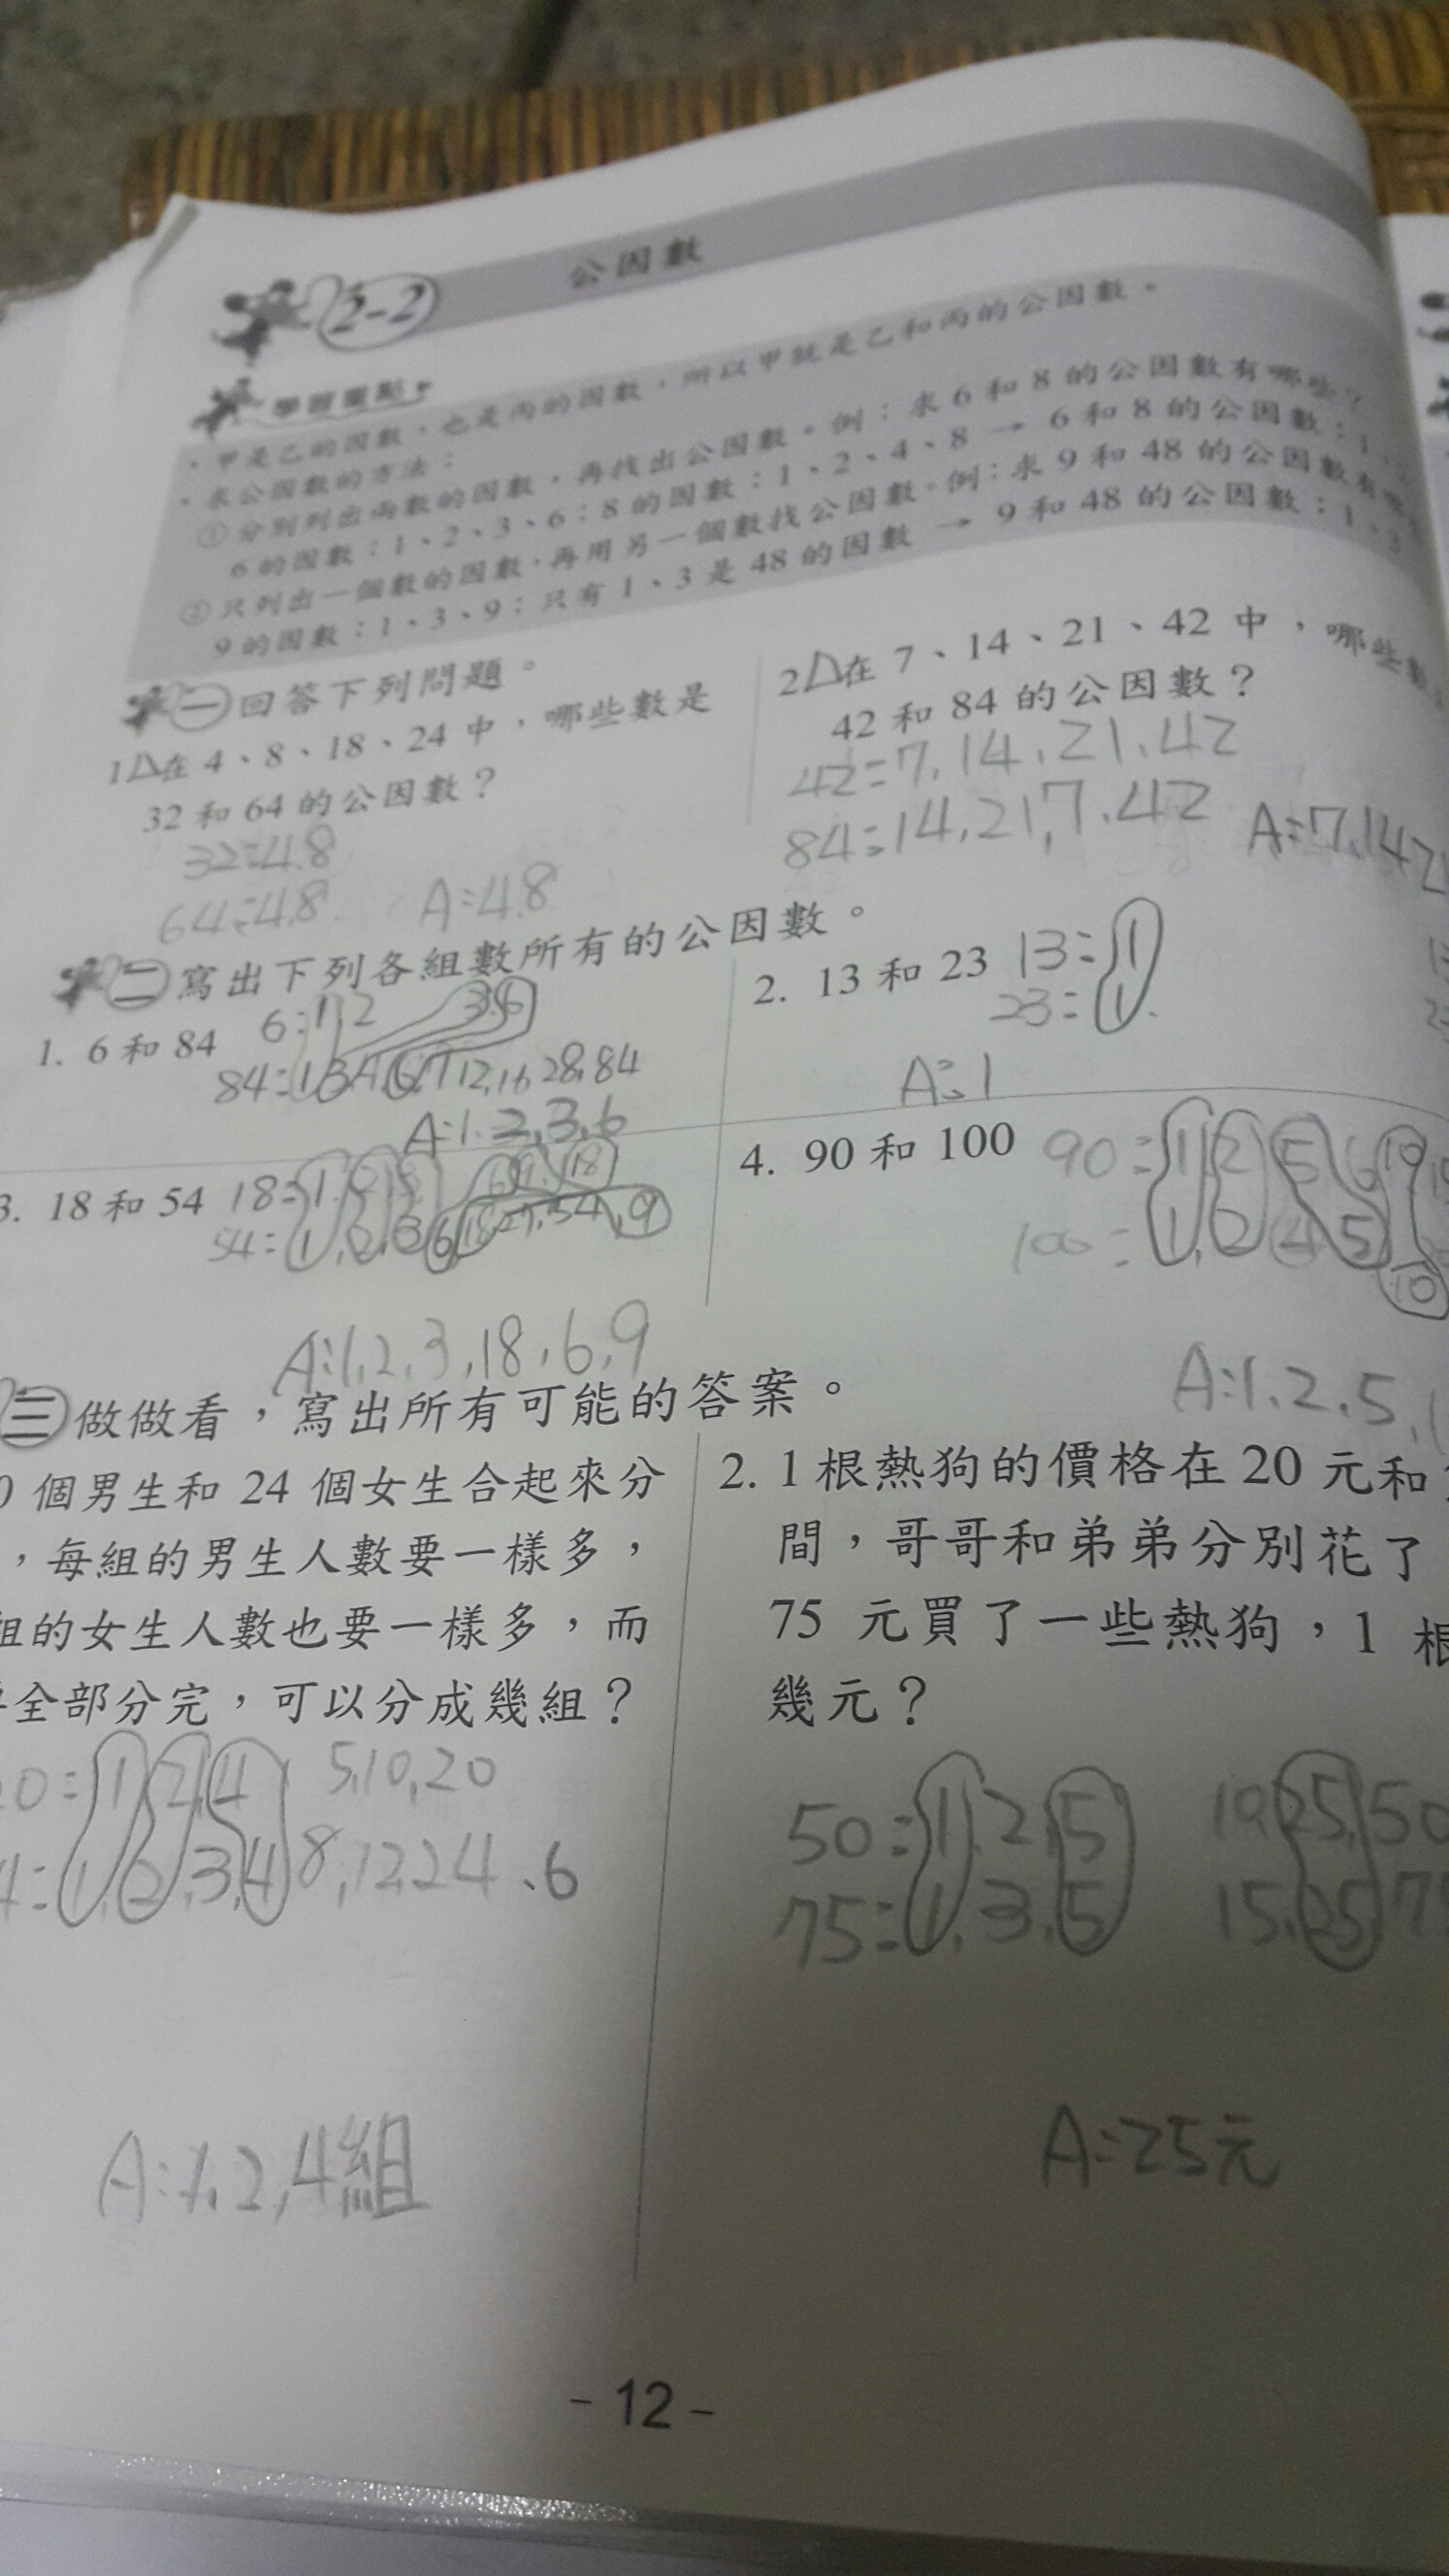 2-2 公因數
學習重點
・甲是乙的因數,也是丙的因數,所以甲就是乙和丙的公因數。
・求公因數的方法:
①分別列出兩數的因數,再找出公因數。例:求6和8的公因數有哪些?
6的因數:1、2、3、6;8的因數:1、2、4、8 → 6和8的公因數:1、
②只列出一個數的因數,再用另一個數找公因數。例:求9和48的公因數有
9的因數:1、3、9;只有1、3是48的因數 → 9和48的公因數:1、3
一 回答下列問題。
1 在4、8、18、24中,哪些數是
32和64的公因數?
32=4.8
64=4.8
A=4.8
2 在7、14、21、42中,哪些數
42和84的公因數?
42=7,14,21,42
84=14,21,7,42
A=7,14
二 寫出下列各組數所有的公因數。
1. 6和84
6=1,2 3,6
12,16 28,84
A:1,2,3,6
2. 13和23
13=1
23=1.
A=1
3. 18和54
18=1,2,3 6,9,18
54=1,2,3 6 18 27,54,9
A:1,2,3,18,6,9
4. 90和100
90=1 2 5 6 10
100=1,2 4 5 10
A:1,2,5,1
三 做做看,寫出所有可能的答案。
0個男生和24個女生合起來分
,每組的男生人數要一樣多,
組的女生人數也要一樣多,而
全部分完,可以分成幾組?
20=1,2,4 5,10,20
4=1,2,3,4 8,12,24、6
A:1,2,4組
2. 1根熱狗的價格在20元和
間,哥哥和弟弟分別花了
75元買了一些熱狗,1根
幾元?
50=1,2,5 10,25,50
75=1,3,5 15,25 7
A=25元
-12-